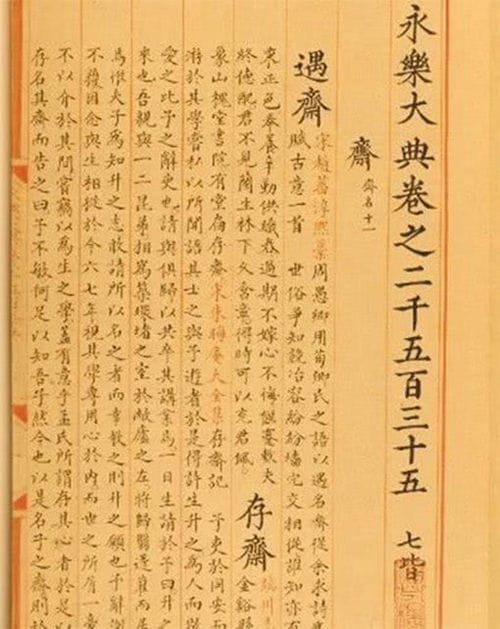 永樂大典卷之二千五百三十五 七皆
齋 齋名十一
遇齋 宋趙蕃淳熙藁 周愚卿用荀卿氏之語以遇名齋從余求詩
賦古意一首 世俗爭知競冶容紛紛墻宂交相從誰知亦有
東正色奉養辛勤供織舂過期不嫁心不悔 夫
終德配君不見蘭生林下久含 得時可以充君佩 存齋 臨川志 金谿縣
象山槐堂書院有堂扁存齋 宋朱晦庵大全集 存齋記 予吏於同安而
游於其學嘗私以所聞語其士之與予遊者於是得許生升之為人而
愛之比予之辭吏也請與俱歸以共卒其講業焉一日生請於予曰升之
來也吾親與一二昆弟相為築環堵之室於敝廬之左將歸翳蓬藋而居
焉惟夫子為知升之志敢請所以名之者而幸教之則升之願也予辭謝
不獲因念與生相從於今六七年視其學專用心於內而世之所屑一毫
不以介於其間嘗竊以為生之學蓋有意乎孟氏所謂存其心者於是以
存名其齋而告之曰予不敏何足以知吾子然今也以是名子之齋則於